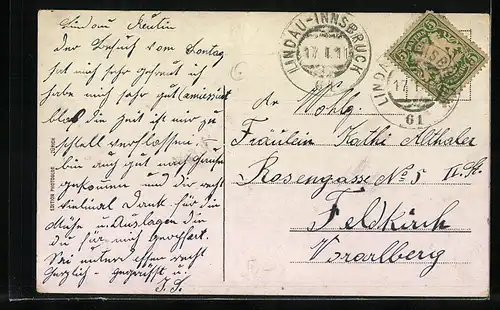 Lindau Reutin
der Besuch vom Sontag
hat mich sehr gefreut ich
habe mich sehr gut amiessiert
blos die Zeit ist mir zu
schnell verflossen.
bin auch gut nach Hause
gekommen und dir recht
vielmal Dank für die
Mühe u Auslagen die
du für mich
Sei unter dessen recht
herzlich gegrüsst u.
J. S.
LINDAU-INNSBRUCK
17
LINDAU
17
61
An Wohlg.
Fräulein Kathi Althaler
Rosengasse No 5 II. St.
Feldkirch
Vorarlberg
EDITION PHOTOGLOB ZÜRICH